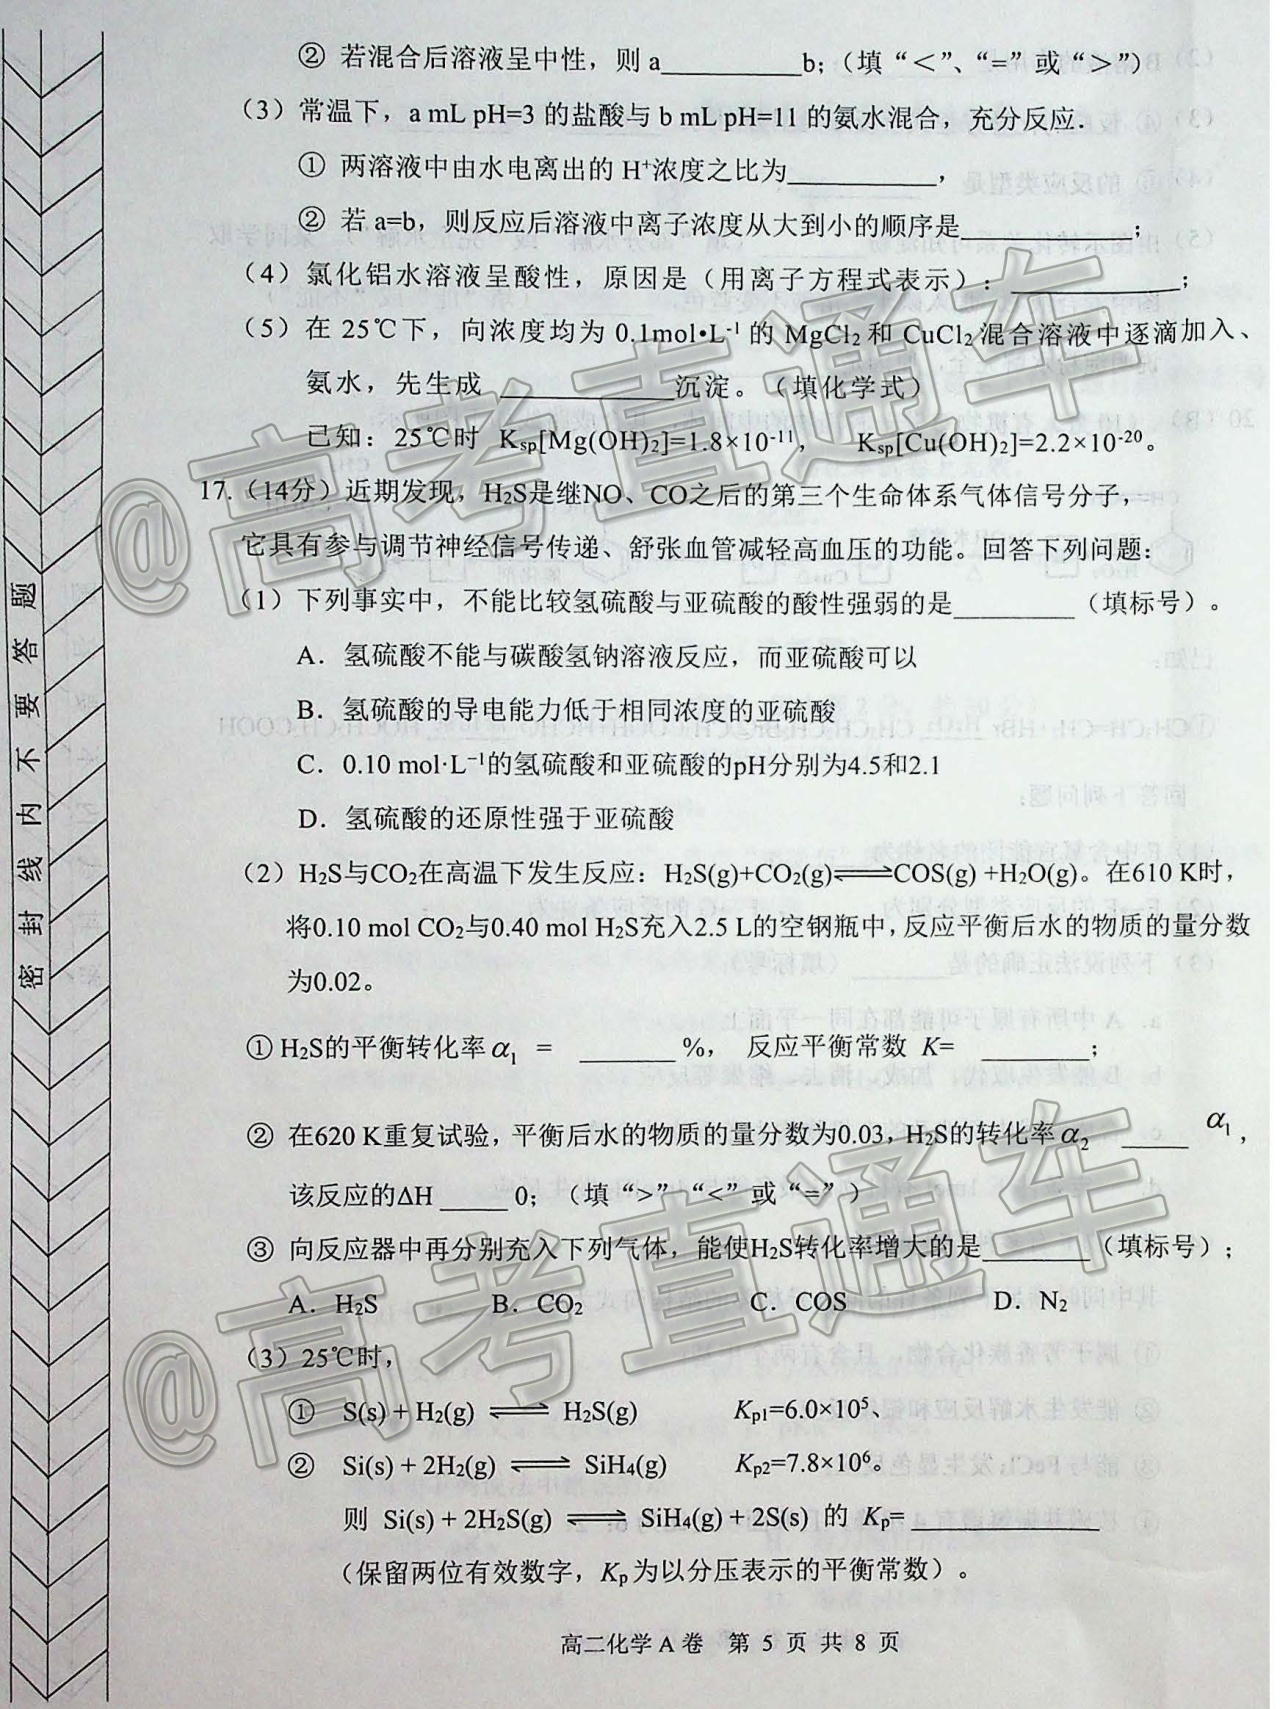 ② 若混合后溶液呈中性，则 a________b;（填“＜”、“=”或“＞”）
（3）常温下，a mL pH=3 的盐酸与 b mL pH=11 的氨水混合，充分反应.
① 两溶液中由水电离出的 H⁺浓度之比为________，
② 若 a=b，则反应后溶液中离子浓度从大到小的顺序是________；
（4）氯化铝水溶液呈酸性，原因是（用离子方程式表示）：________；
（5）在 25℃下，向浓度均为 0.1mol•L⁻¹ 的 MgCl₂ 和 CuCl₂ 混合溶液中逐滴加入、
氨水，先生成 ________沉淀。（填化学式）
已知：25℃时 Ksp[Mg(OH)₂]=1.8×10⁻¹¹， Ksp[Cu(OH)₂]=2.2×10⁻²⁰。
17.（14分）近期发现，H₂S是继NO、CO之后的第三个生命体系气体信号分子，
它具有参与调节神经信号传递、舒张血管减轻高血压的功能。回答下列问题：
（1）下列事实中，不能比较氢硫酸与亚硫酸的酸性强弱的是________（填标号）。
A．氢硫酸不能与碳酸氢钠溶液反应，而亚硫酸可以
B．氢硫酸的导电能力低于相同浓度的亚硫酸
C．0.10 mol·L⁻¹的氢硫酸和亚硫酸的pH分别为4.5和2.1
D．氢硫酸的还原性强于亚硫酸
（2）H₂S与CO₂在高温下发生反应：H₂S(g)+CO₂(g)⇌COS(g) +H₂O(g)。在610 K时，
将0.10 mol CO₂与0.40 mol H₂S充入2.5 L的空钢瓶中，反应平衡后水的物质的量分数
为0.02。
① H₂S的平衡转化率 α₁ = ________%， 反应平衡常数 K= ________；
② 在620 K重复试验，平衡后水的物质的量分数为0.03，H₂S的转化率 α₂ _____ α₁，
该反应的ΔH _____ 0；（填“>”“<”或“=”）
③ 向反应器中再分别充入下列气体，能使H₂S转化率增大的是________（填标号）；
A．H₂S B．CO₂ C．COS D．N₂
（3）25℃时，
① S(s) + H₂(g) ⇌ H₂S(g) Kp1=6.0×10⁵、
② Si(s) + 2H₂(g) ⇌ SiH₄(g) Kp2=7.8×10⁶。
则 Si(s) + 2H₂S(g) ⇌ SiH₄(g) + 2S(s) 的 Kp= ________
（保留两位有效数字，Kp为以分压表示的平衡常数）。
高二化学 A 卷 第 5 页 共 8 页
密封线内不要答题
@高考直通车
@高考直通车